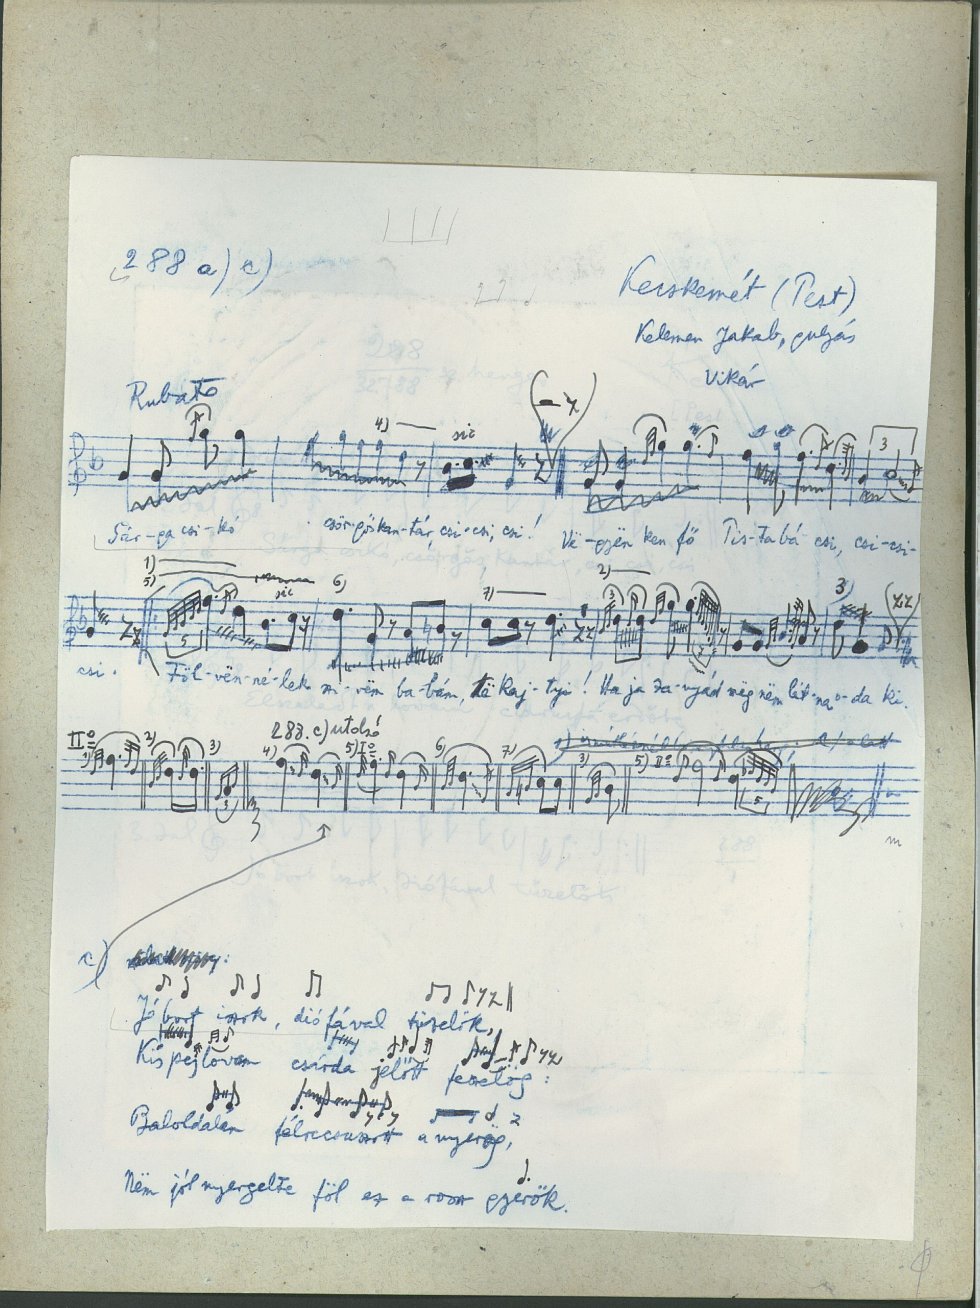 288 a) c)
Kecskemét (Pest)
Kelemen Jakab, gulyás
Vikár
Rubato
4) sic
3
Sár-ga csi-kó csörgőskan-tár, csi-csi, csi! Vë-gyën ken fő Pis-ta bá-csi, csi-csi-
1)
5) sic 6) 7) 2) 3)
csi. Föl-vën-ne-lek mi-vëm ba-bám, të Kaj-tyi! Ha ja ta-nyád még nëm lát-na o-da ki.
288. c) utolsó
IIo 1) 2) 3) 4) 5) Io 6) 7) 3) 5) IIo
c)
Jó bort iszok, diófával tüzelök,
Kis pejlovam csárda jelőtt fejelög:
Baloldalan félrecsuszott a nyerög,
Nëm jól nyergelte föl ez a rossz gyerök.